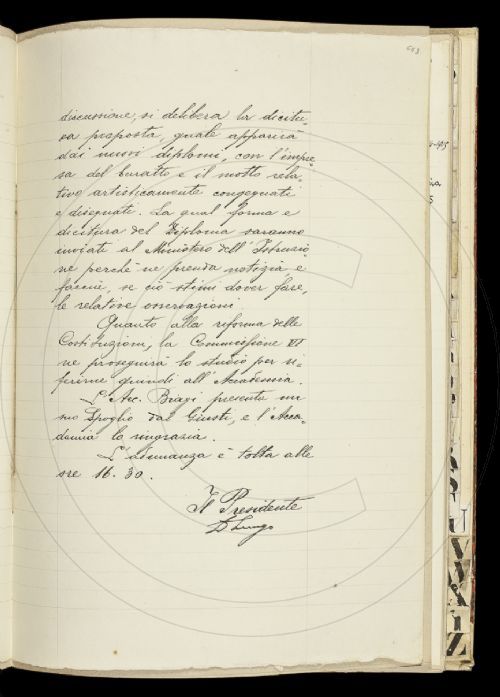 discussione, si delibera la dicitu-
ra proposta, quale apparirà
dai nuovi diplomi, con l'impre-
sa del buratto e il motto rela-
tivo artisticamente congegnati
e disegnati. La qual forma e
dicitura del Diploma saranno
inviati al Ministero dell'Istruzio-
ne perché ne prenda notizia e
faccia, se ciò stimi dover fare,
le relative osservazioni.
Quanto alla riforma delle
Costituzioni, la Commissione
ne proseguirà lo studio per ri-
ferirne quindi all'Accademia.
L'Acc. Biagi presenta un
suo Spoglio dal Giusti, e l'Acca-
demia lo ringrazia.
L'adunanza è tolta alle
ore 16.30.
Il Presidente
D Lungo